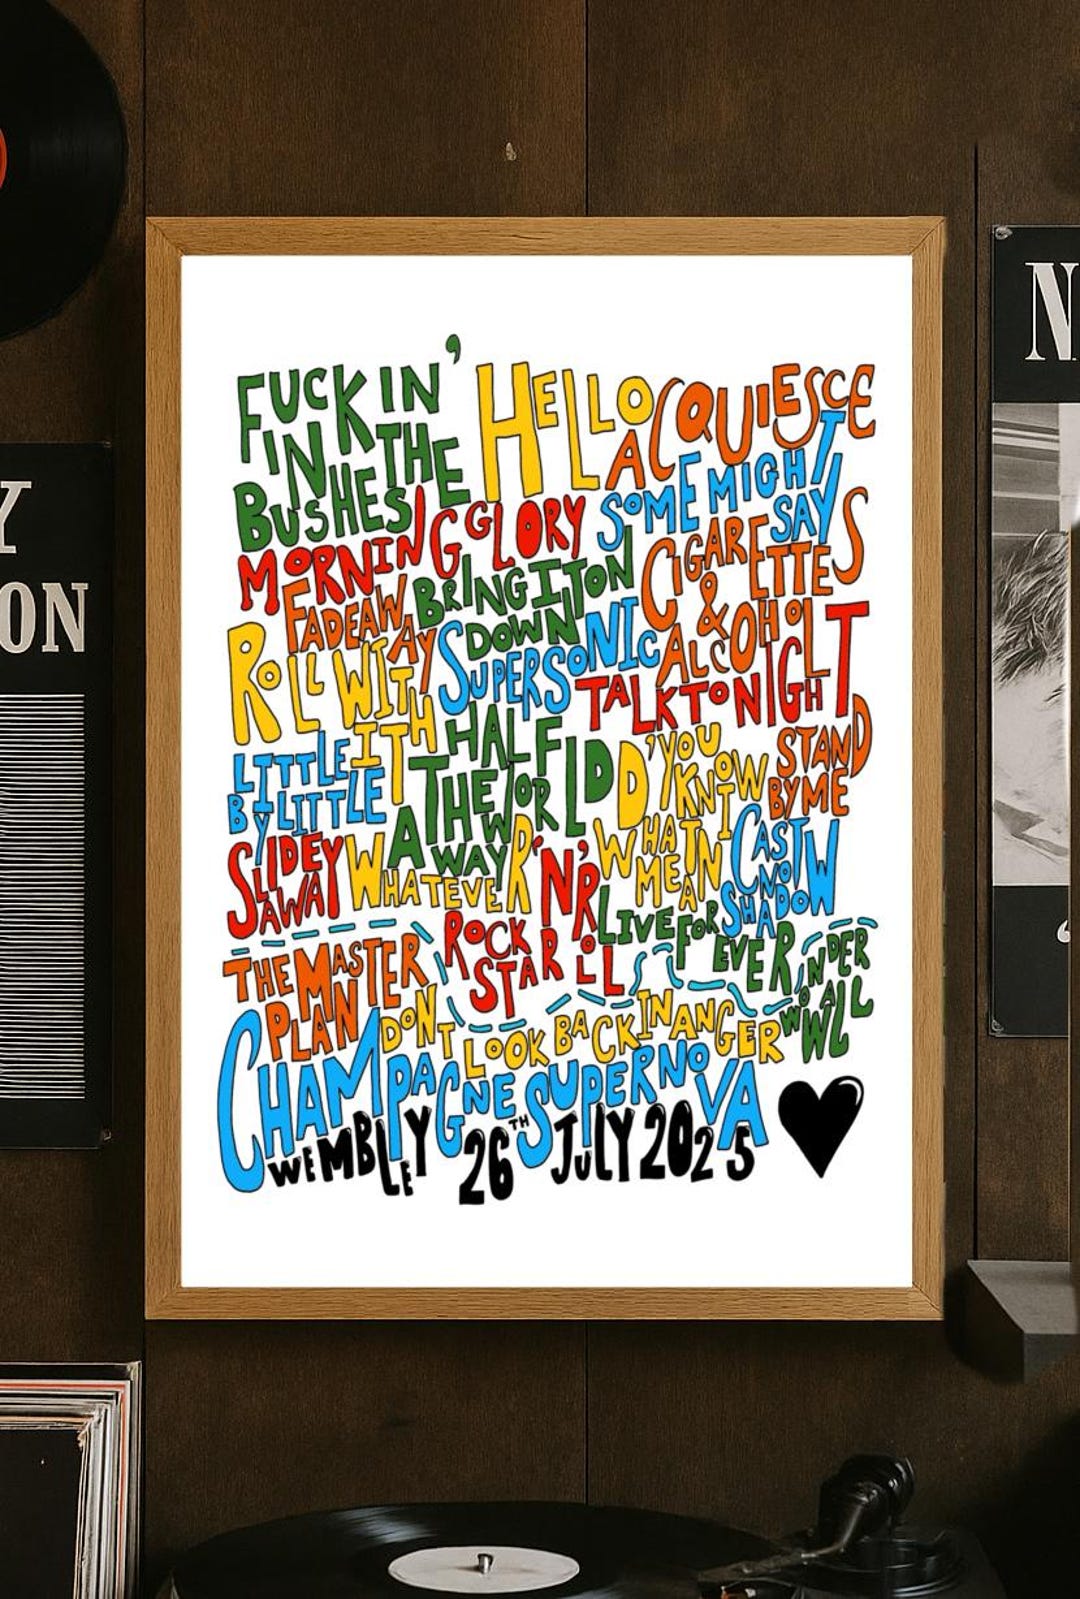 FUCKIN' IN THE BUSHES
HELLO
ACQUIESCE
MORNING GLORY
SOME MIGHT SAY
BRING IT ON DOWN
CIGARETTES & ALCOHOL
FADEAWAY
SUPERSONIC
ROLL WITH IT
TALK TONIGHT
HALF THE WORLD AWAY
LITTLE BY LITTLE
D'YOU KNOW WHAT I MEAN
STAND BY ME
CAST NO SHADOW
SLIDE AWAY
WHATEVER
ROCK 'N' ROLL STAR
LIVE FOREVER
THE MASTER PLAN
DONT LOOK BACK IN ANGER
WONDERWALL
CHAMPAGNE SUPERNOVA
WEMBLEY 26TH JULY 2025
Y
ON
N